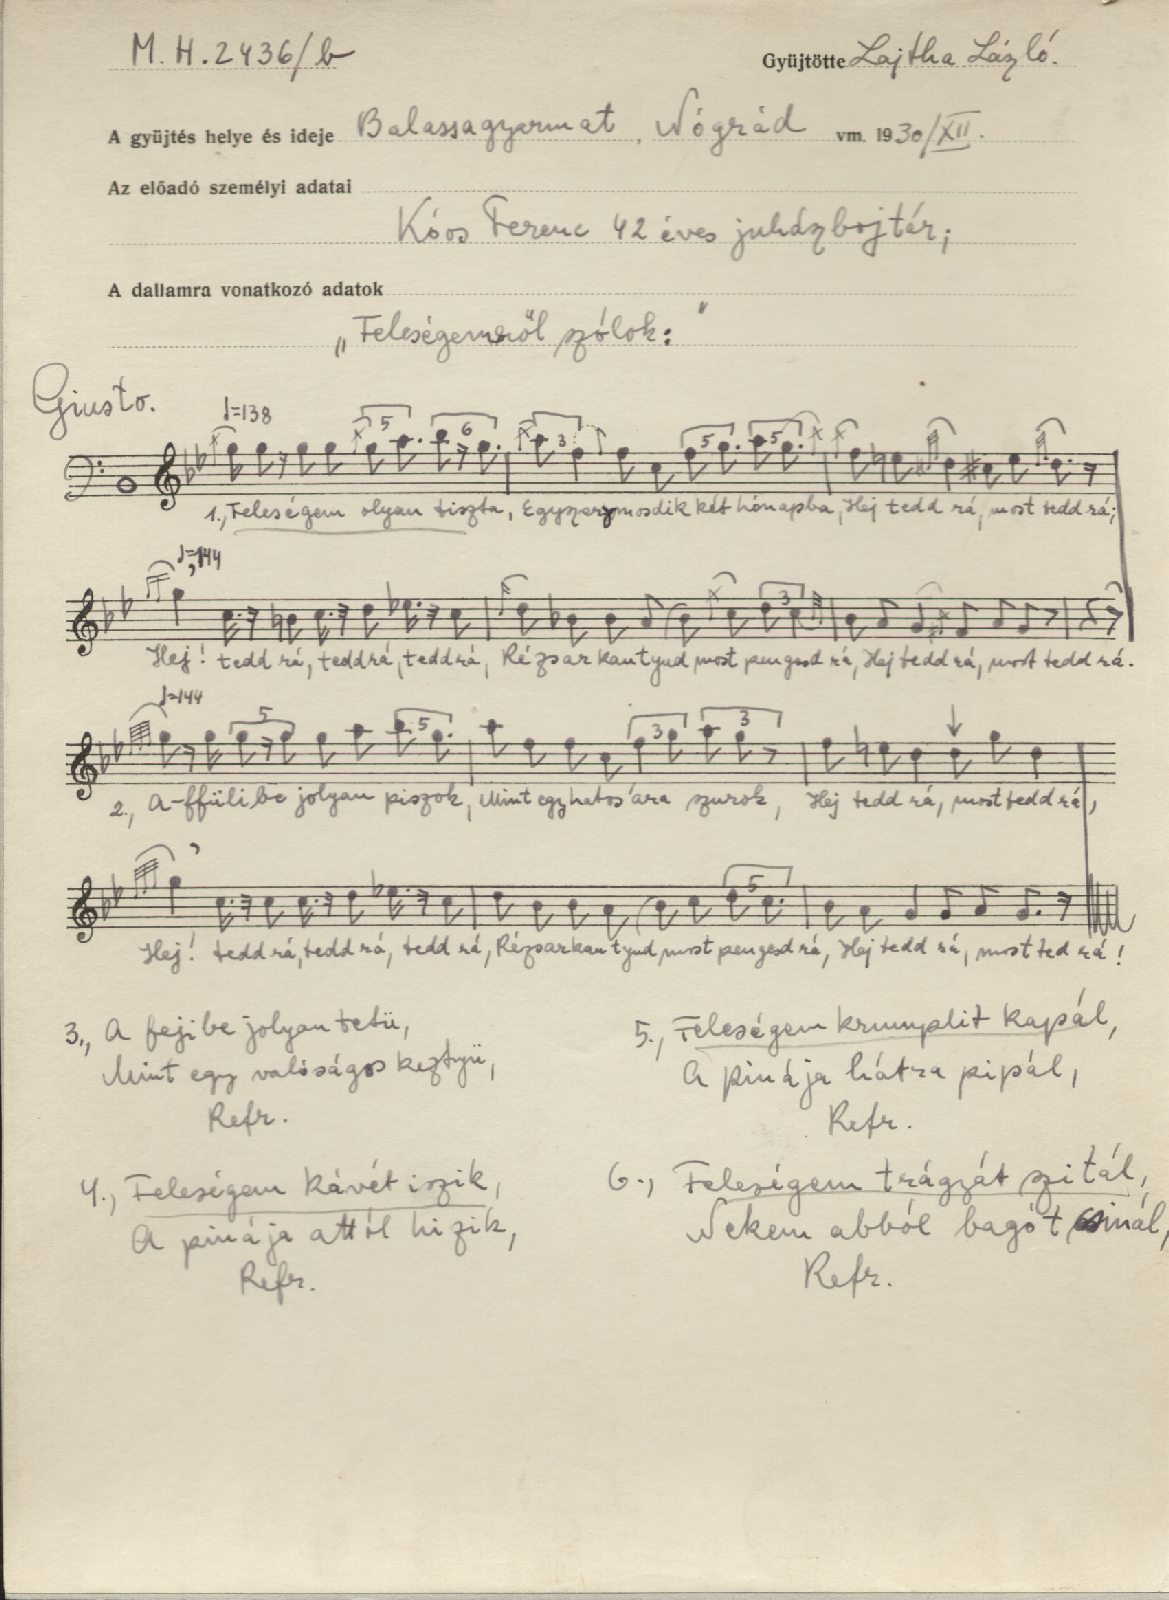 M. H. 2436/b
Gyüjtötte Lajtha László.
A gyüjtés helye és ideje Balassagyarmat, Nógrád vm. 1930/XII.
Az előadó személyi adatai
Kóos Ferenc 42 éves juhászbojtár;
A dallamra vonatkozó adatok
„Feleségemről szólok:"
Giusto.
♩=138
5 6 3 5 5
1., Feleségem olyan tiszta, Egyszer mosdik két hónapba, Hej tedd rá, most tedd rá;
♩=144
3
Hej! tedd rá, tedd rá, tedd rá, Rézsarkantyud most pengesd rá, Hej tedd rá, most tedd rá.
♩=144
5 5 3 3
2., A-ffülibe jolyan piszok, Mint egy hatos ára szurok, Hej tedd rá, most tedd rá,
5
Hej! tedd rá, tedd rá, tedd rá, Rézsarkantyud most pengesd rá, Hej tedd rá, most ted rá!
3., A fejibe jolyan tetü,
Mint egy valóságos keztyü,
Refr.
4., Feleségem kávét iszik,
A pinája attól hizik,
Refr.
5., Feleségem krumplit kapál,
A pinája hátra pipál,
Refr.
6., Feleségem trágyát szitál,
Nekem abból bagót sinál,
Refr.